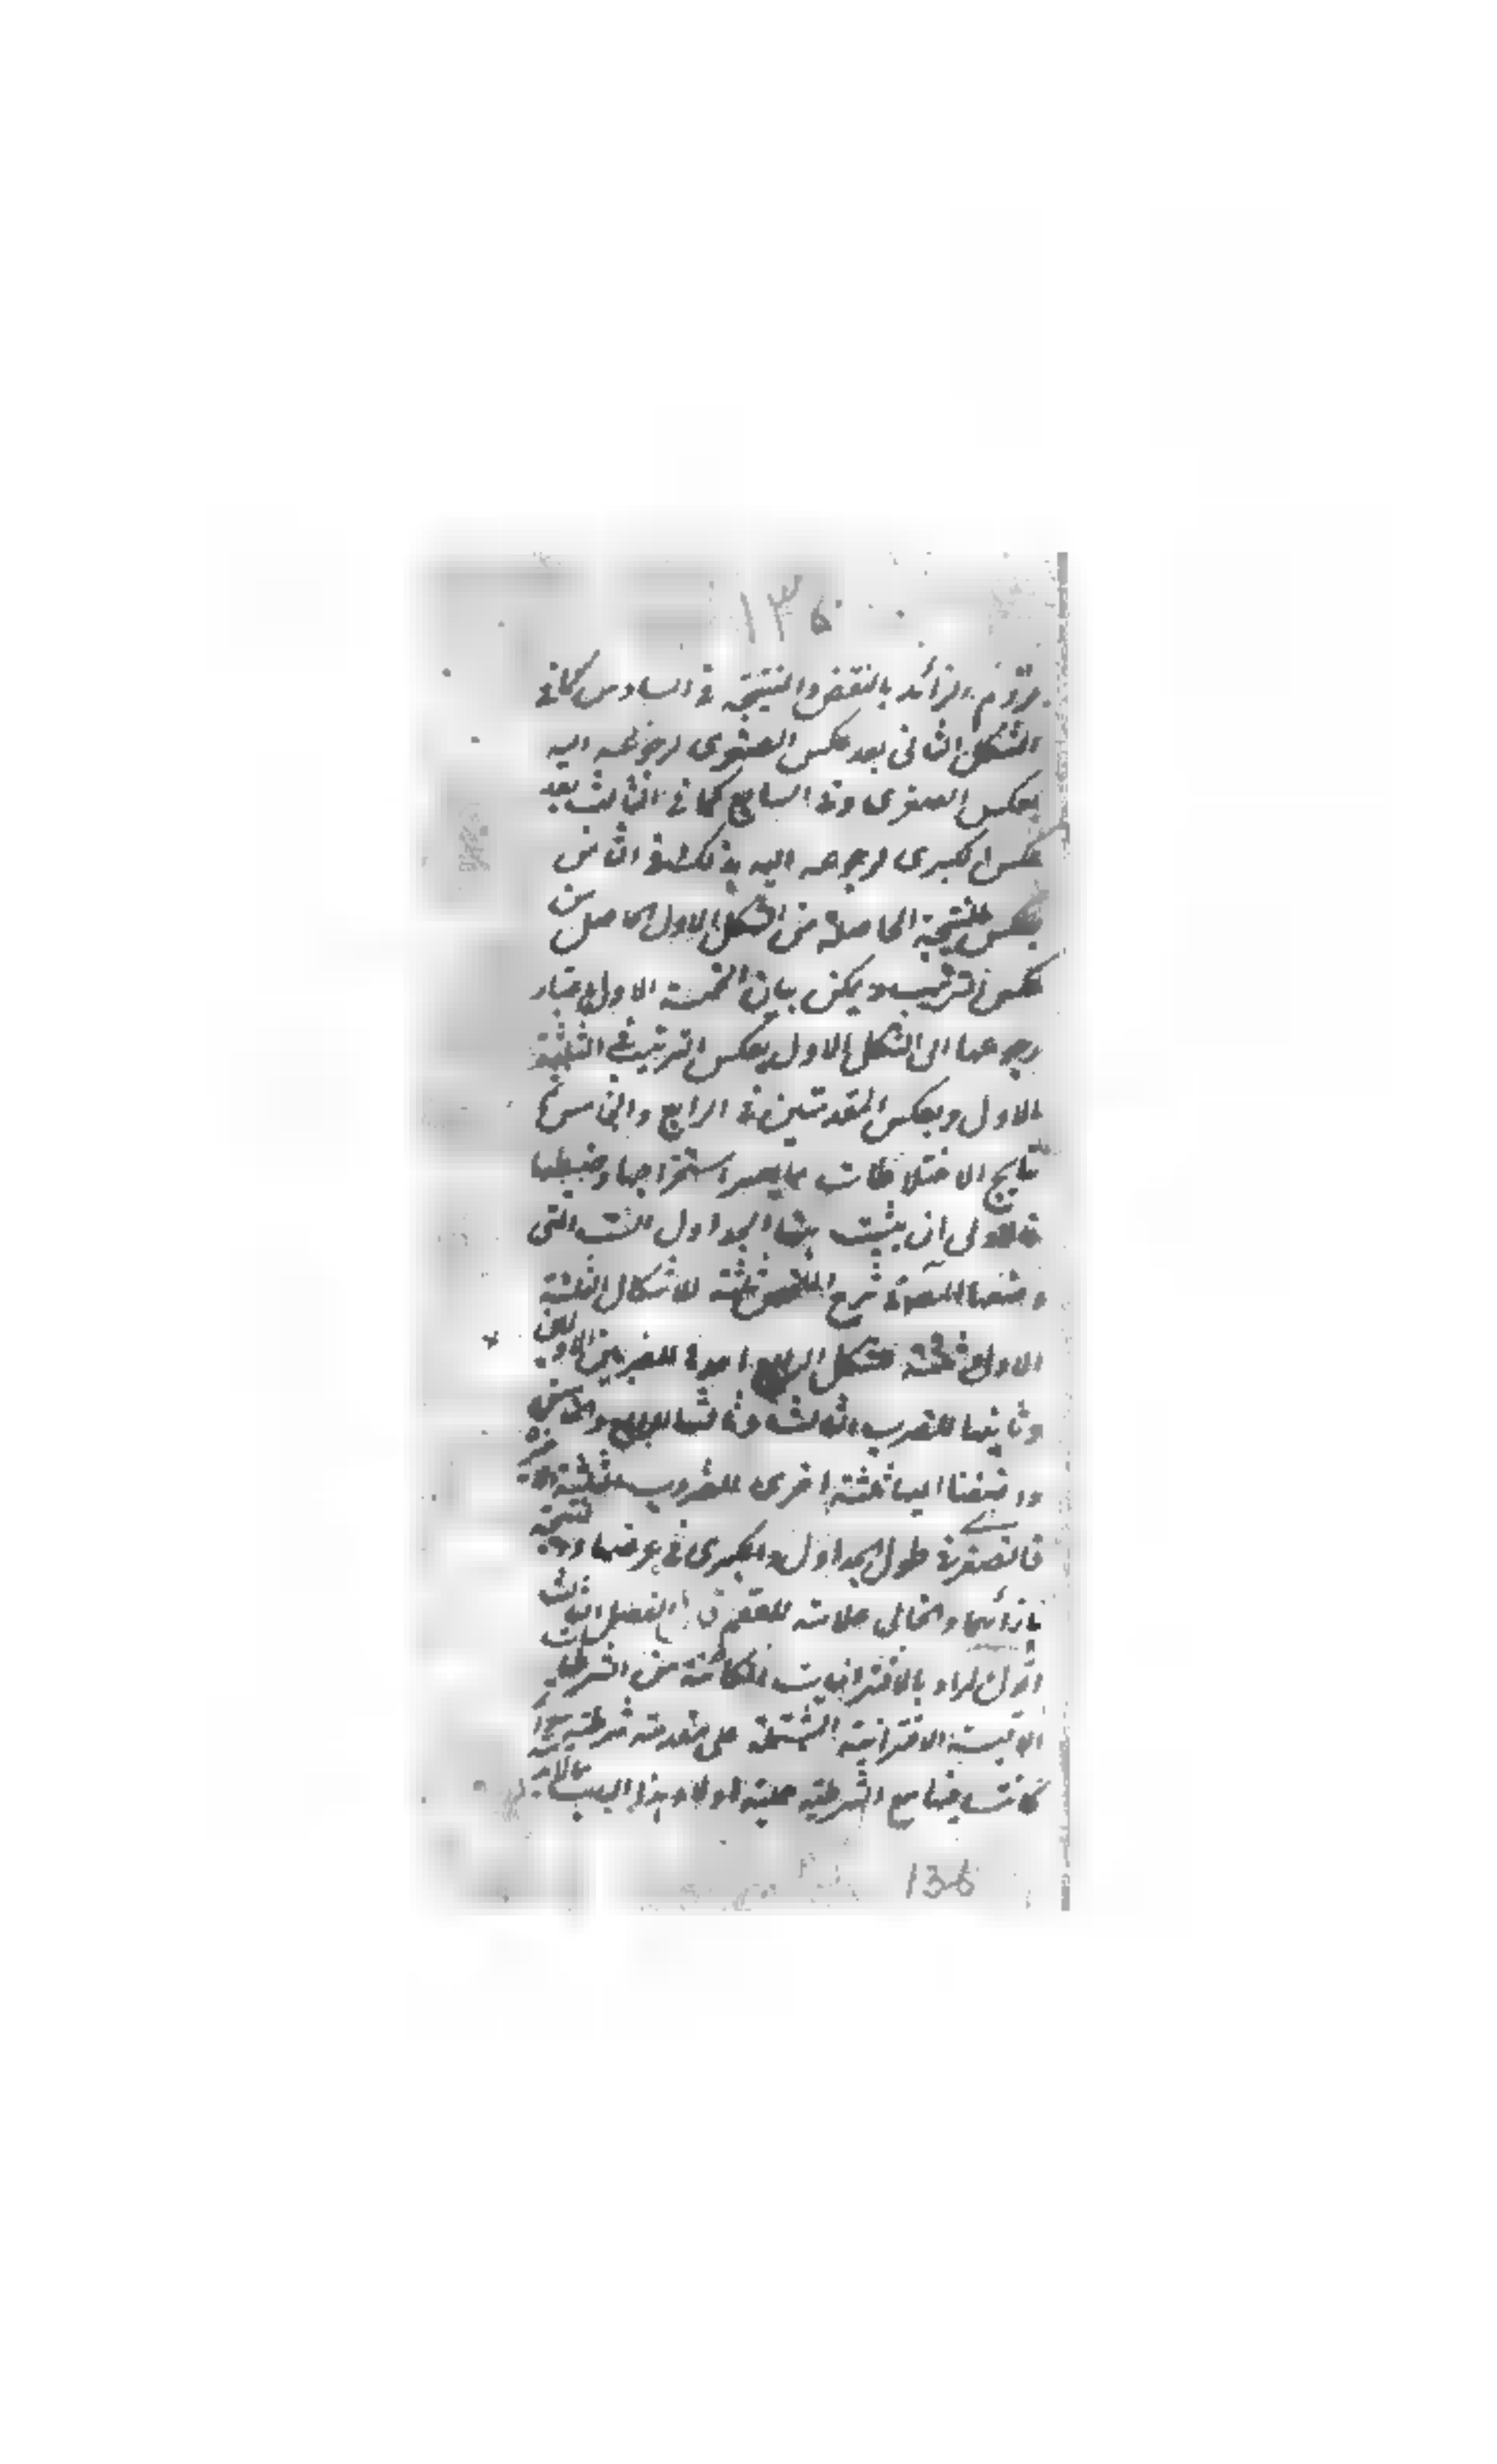 ١٣٥
لزوم الزائد بالنقض والنتيجة في السادس كما في
الشكل الثاني بعد عكس الصغرى لرجوعه اليه
بعكس الصغرى وفي السابع كما في الثالث بعد
عكس الكبرى لرجوعه اليه بذلك وفي الثامن
بعكس النتيجة الحاصلة من الشكل الاول الحاصل من
عكس الترتيب ويمكن بيان الخمسة الاول باعتبار
رجوعها الى الشكل الاول بعكس الترتيب في الثلثة
الاول وبعكس المقدمتين في الرابع والخامس
نتايج الاختلاطات مما يعسر استخراجها وضبطها
فالاولى ان يثبت هنا الجداول الست التي
وضعها المص في شرح الملخص ثلثة للاشكال الثلثة
الاول وثلثة للشكل الرابع احدها للضربين الاولين
وثانيها للضرب الثالث وثالثها للرابع والخامس
واضفنا اليها ثلثة اخرى للضروب الثلثة الاخيرة
فالصغرى في طول الجداول والكبرى في عرضها والنتيجة
بازائهما والخالي علامته للعقم قال الفصل الثالث
اقول المراد بالاقترانيات الكائنة من الشرطيات
الاقيسة الاقترانية المشتملة على مقدمة شرطية سواء
كانت فيها مع الشرطية حملية اولا وهذا الباب
136